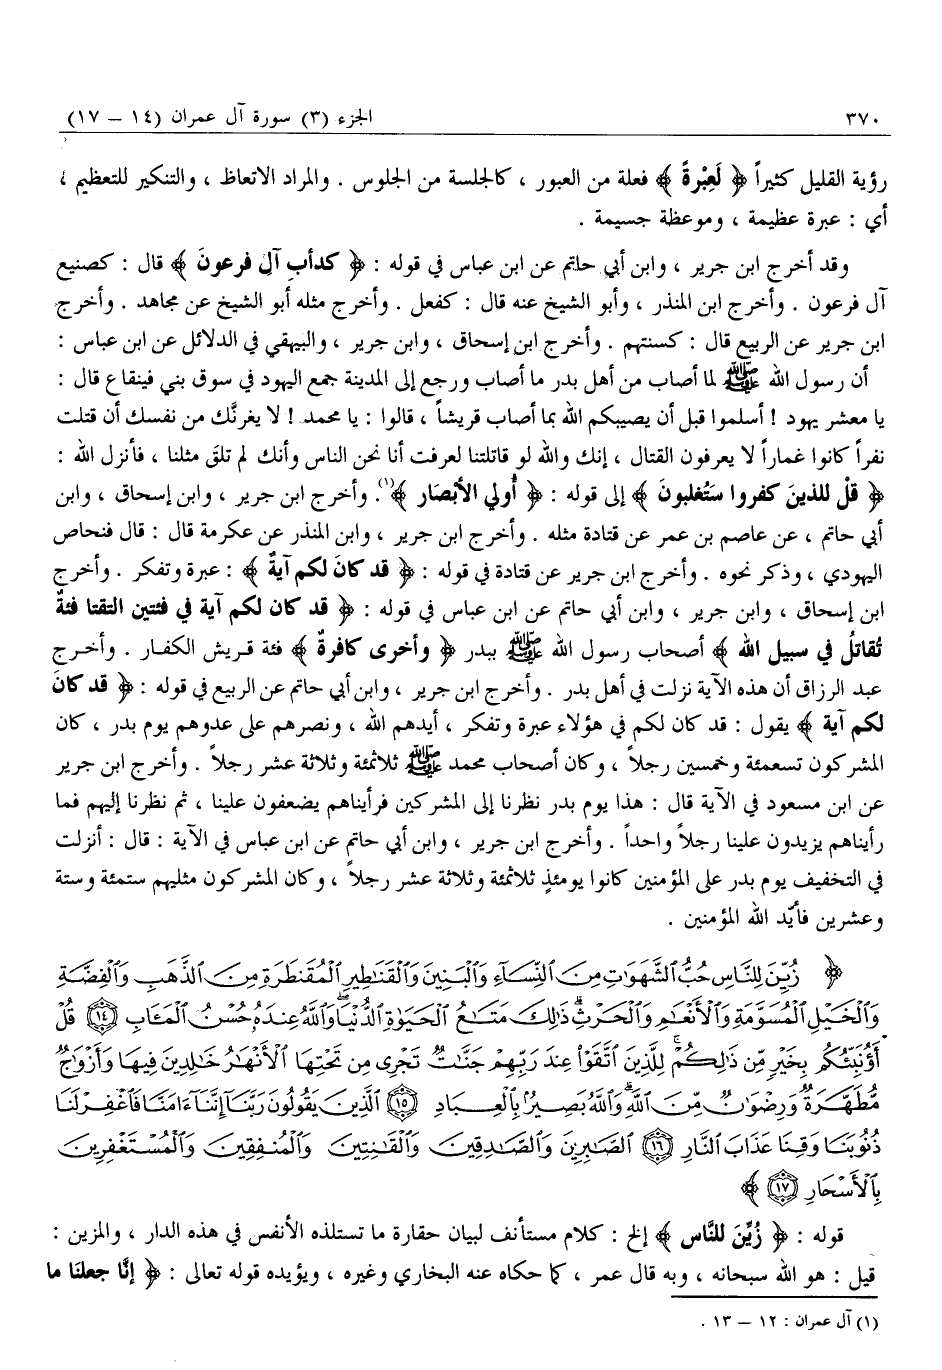 ٣٧٠ الجزء (٣) سورة آل عمران (١٤ – ١٧)
رؤية القليل كثيراً ﴿ لَعِبْرةً ﴾ فعلة من العبور ، كالجلسة من الجلوس . والمراد الاتعاظ ، والتنكير للتعظيم ،
أي : عبرة عظيمة ، وموعظة جسيمة .
وقد أخرج ابن جرير ، وابن أبي حاتم عن ابن عباس في قوله : ﴿ كدأبِ آلِ فرعونَ ﴾ قال : كصنيع
آل فرعون . وأخرج ابن المنذر ، وأبو الشيخ عنه قال : كفعل . وأخرج مثله أبو الشيخ عن مجاهد . وأخرج
ابن جرير عن الربيع قال : كسنتهم . وأخرج ابن إسحاق ، وابن جرير ، والبيهقي في الدلائل عن ابن عباس :
أن رسول الله ﷺ لما أصاب من أهل بدر ما أصاب ورجع إلى المدينة جمع اليهود في سوق بني قينقاع قال :
يا معشر يهود ! أسلموا قبل أن يصيبكم الله بما أصاب قريشاً ، قالوا : يا محمد ! لا يغرنَّك من نفسك أن قتلت
نفراً كانوا غماراً لا يعرفون القتال ، إنك والله لو قاتلتنا لعرفت أنا نحن الناس وأنك لم تلقَ مثلنا ، فأنزل الله :
﴿ قلْ للذينَ كفروا سَتُغلبونَ ﴾ إلى قوله : ﴿ أُولي الأبْصَار ﴾(١). وأخرج ابن جرير ، وابن إسحاق ، وابن
أبي حاتم ، عن عاصم بن عمر عن قتادة مثله . وأخرج ابن جرير ، وابن المنذر عن عكرمة قال : قال فنحاص
اليهودي ، وذكر نحوه . وأخرج ابن جرير عن قتادة في قوله : ﴿ قد كانَ لكم آيةٌ ﴾ : عبرة وتفكر . وأخرج
ابن إسحاق ، وابن جرير ، وابن أبي حاتم عن ابن عباس في قوله : ﴿ قد كان لكم آية في فئتين التقتا فئةٌ
تُقاتلُ في سبيل الله ﴾ أصحاب رسول الله ﷺ ببدر ﴿ وأخرى كافرةٌ ﴾ فئة قريش الكفار . وأخرج
عبد الرزاق أن هذه الآية نزلت في أهل بدر . وأخرج ابن جرير ، وابن أبي حاتم عن الربيع في قوله : ﴿ قد كانَ
لكم آية ﴾ يقول : قد كان لكم في هؤلاء عبرة وتفكر ، أيدهم الله ، ونصرهم على عدوهم يوم بدر ، كان
المشركون تسعمئة وخمسين رجلاً ، وكان أصحاب محمد ﷺ ثلاثمئة وثلاثة عشر رجلاً . وأخرج ابن جرير
عن ابن مسعود في الآية قال : هذا يوم بدر نظرنا إلى المشركين فرأيناهم يضعفون علينا ، ثم نظرنا إليهم فما
رأيناهم يزيدون علينا رجلاً واحداً . وأخرج ابن جرير ، وابن أبي حاتم عن ابن عباس في الآية : قال : أنزلت
في التخفيف يوم بدر على المؤمنين كانوا يومئذٍ ثلاثمئة وثلاثة عشر رجلاً ، وكان المشركون مثليهم ستمئة وستة
وعشرين فأيّد الله المؤمنين .
﴿ زُيِّنَ لِلنَّاسِ حُبُّ ٱلشَّهَوَٰتِ مِنَ ٱلنِّسَآءِ وَٱلْبَنِينَ وَٱلْقَنَٰطِيرِ ٱلْمُقَنطَرَةِ مِنَ ٱلذَّهَبِ وَٱلْفِضَّةِ
وَٱلْخَيْلِ ٱلْمُسَوَّمَةِ وَٱلْأَنْعَٰمِ وَٱلْحَرْثِ ۗ ذَٰلِكَ مَتَٰعُ ٱلْحَيَوٰةِ ٱلدُّنْيَا ۖ وَٱللَّهُ عِندَهُۥ حُسْنُ ٱلْمَـَٔابِ ١٤ قُلْ
أَؤُنَبِّئُكُم بِخَيْرٍ مِّن ذَٰلِكُمْ ۚ لِلَّذِينَ ٱتَّقَوْا۟ عِندَ رَبِّهِمْ جَنَّٰتٌ تَجْرِى مِن تَحْتِهَا ٱلْأَنْهَٰرُ خَٰلِدِينَ فِيهَا وَأَزْوَٰجٌ
مُّطَهَّرَةٌ وَرِضْوَٰنٌ مِّنَ ٱللَّهِ ۗ وَٱللَّهُ بَصِيرٌۢ بِٱلْعِبَادِ ١٥ ٱلَّذِينَ يَقُولُونَ رَبَّنَآ إِنَّنَآ ءَامَنَّا فَٱغْفِرْ لَنَا
ذُنُوبَنَا وَقِنَا عَذَابَ ٱلنَّارِ ١٦ ٱلصَّٰبِرِينَ وَٱلصَّٰدِقِينَ وَٱلْقَٰنِتِينَ وَٱلْمُنفِقِينَ وَٱلْمُسْتَغْفِرِينَ
بِٱلْأَسْحَارِ ١٧ ﴾
قوله : ﴿ زُيِّنَ للنَّاس ﴾ إلخ : كلام مستأنف لبيان حقارة ما تستلذه الأنفس في هذه الدار ، والمزين :
قيل : هو الله سبحانه ، وبه قال عمر ، كما حكاه عنه البخاري وغيره ، ويؤيده قوله تعالى : ﴿ إنَّا جعلنَا ما
(١) آل عمران : ١٢ – ١٣ .